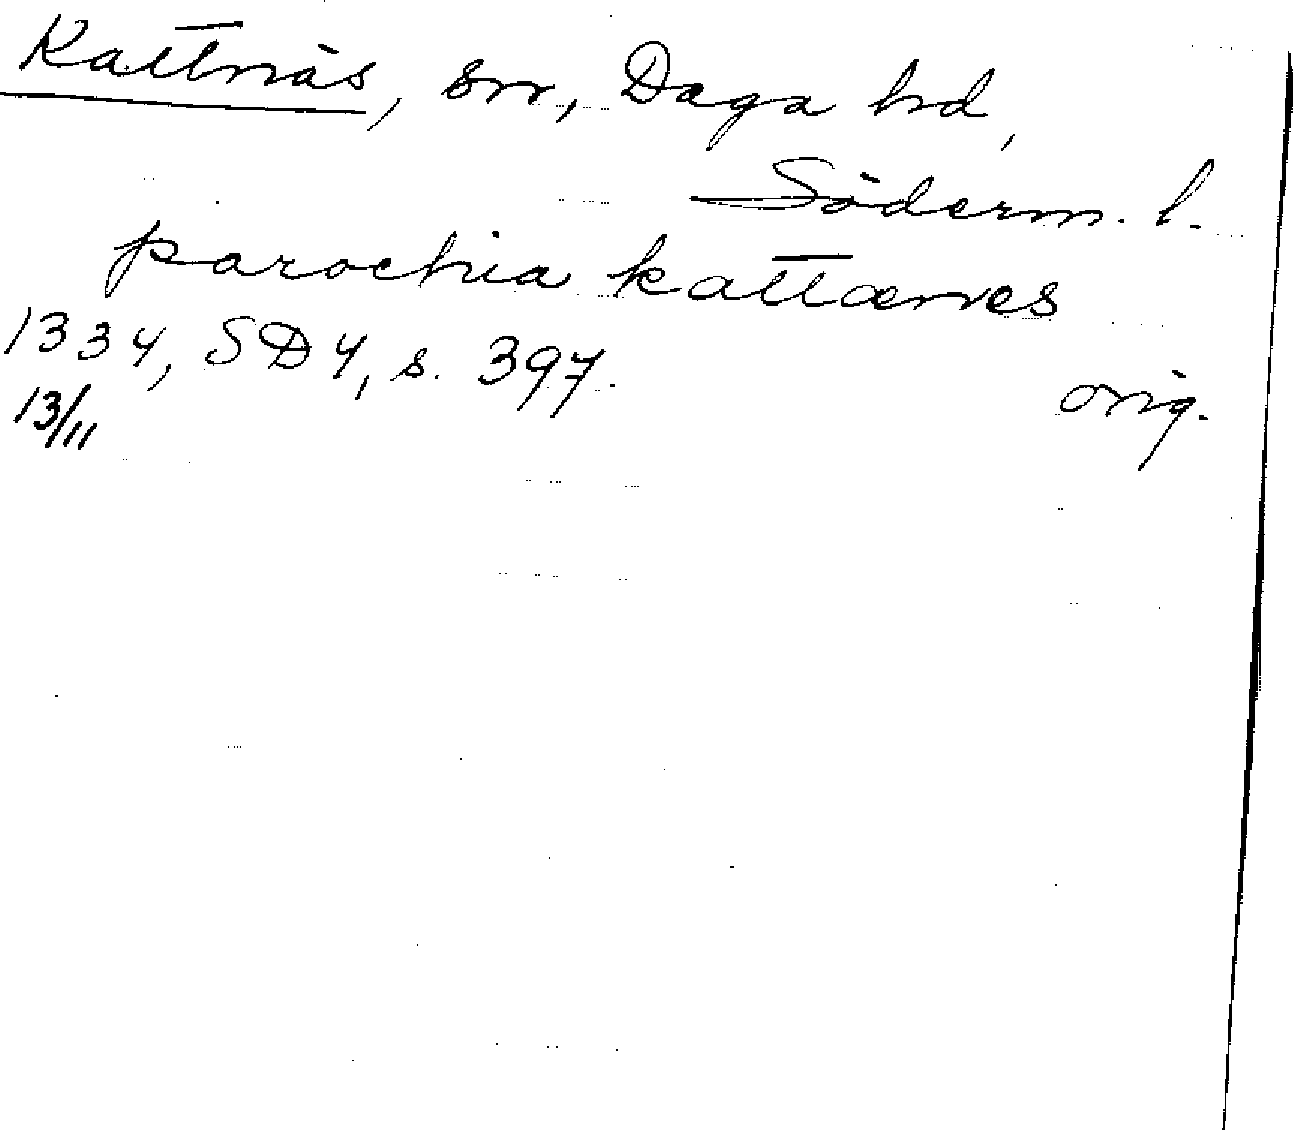 Kattnäs, sn, Daga hd,
Söderm. l.
parochia kattærnes
1334, SD 4, s. 397.
orig.
13/11